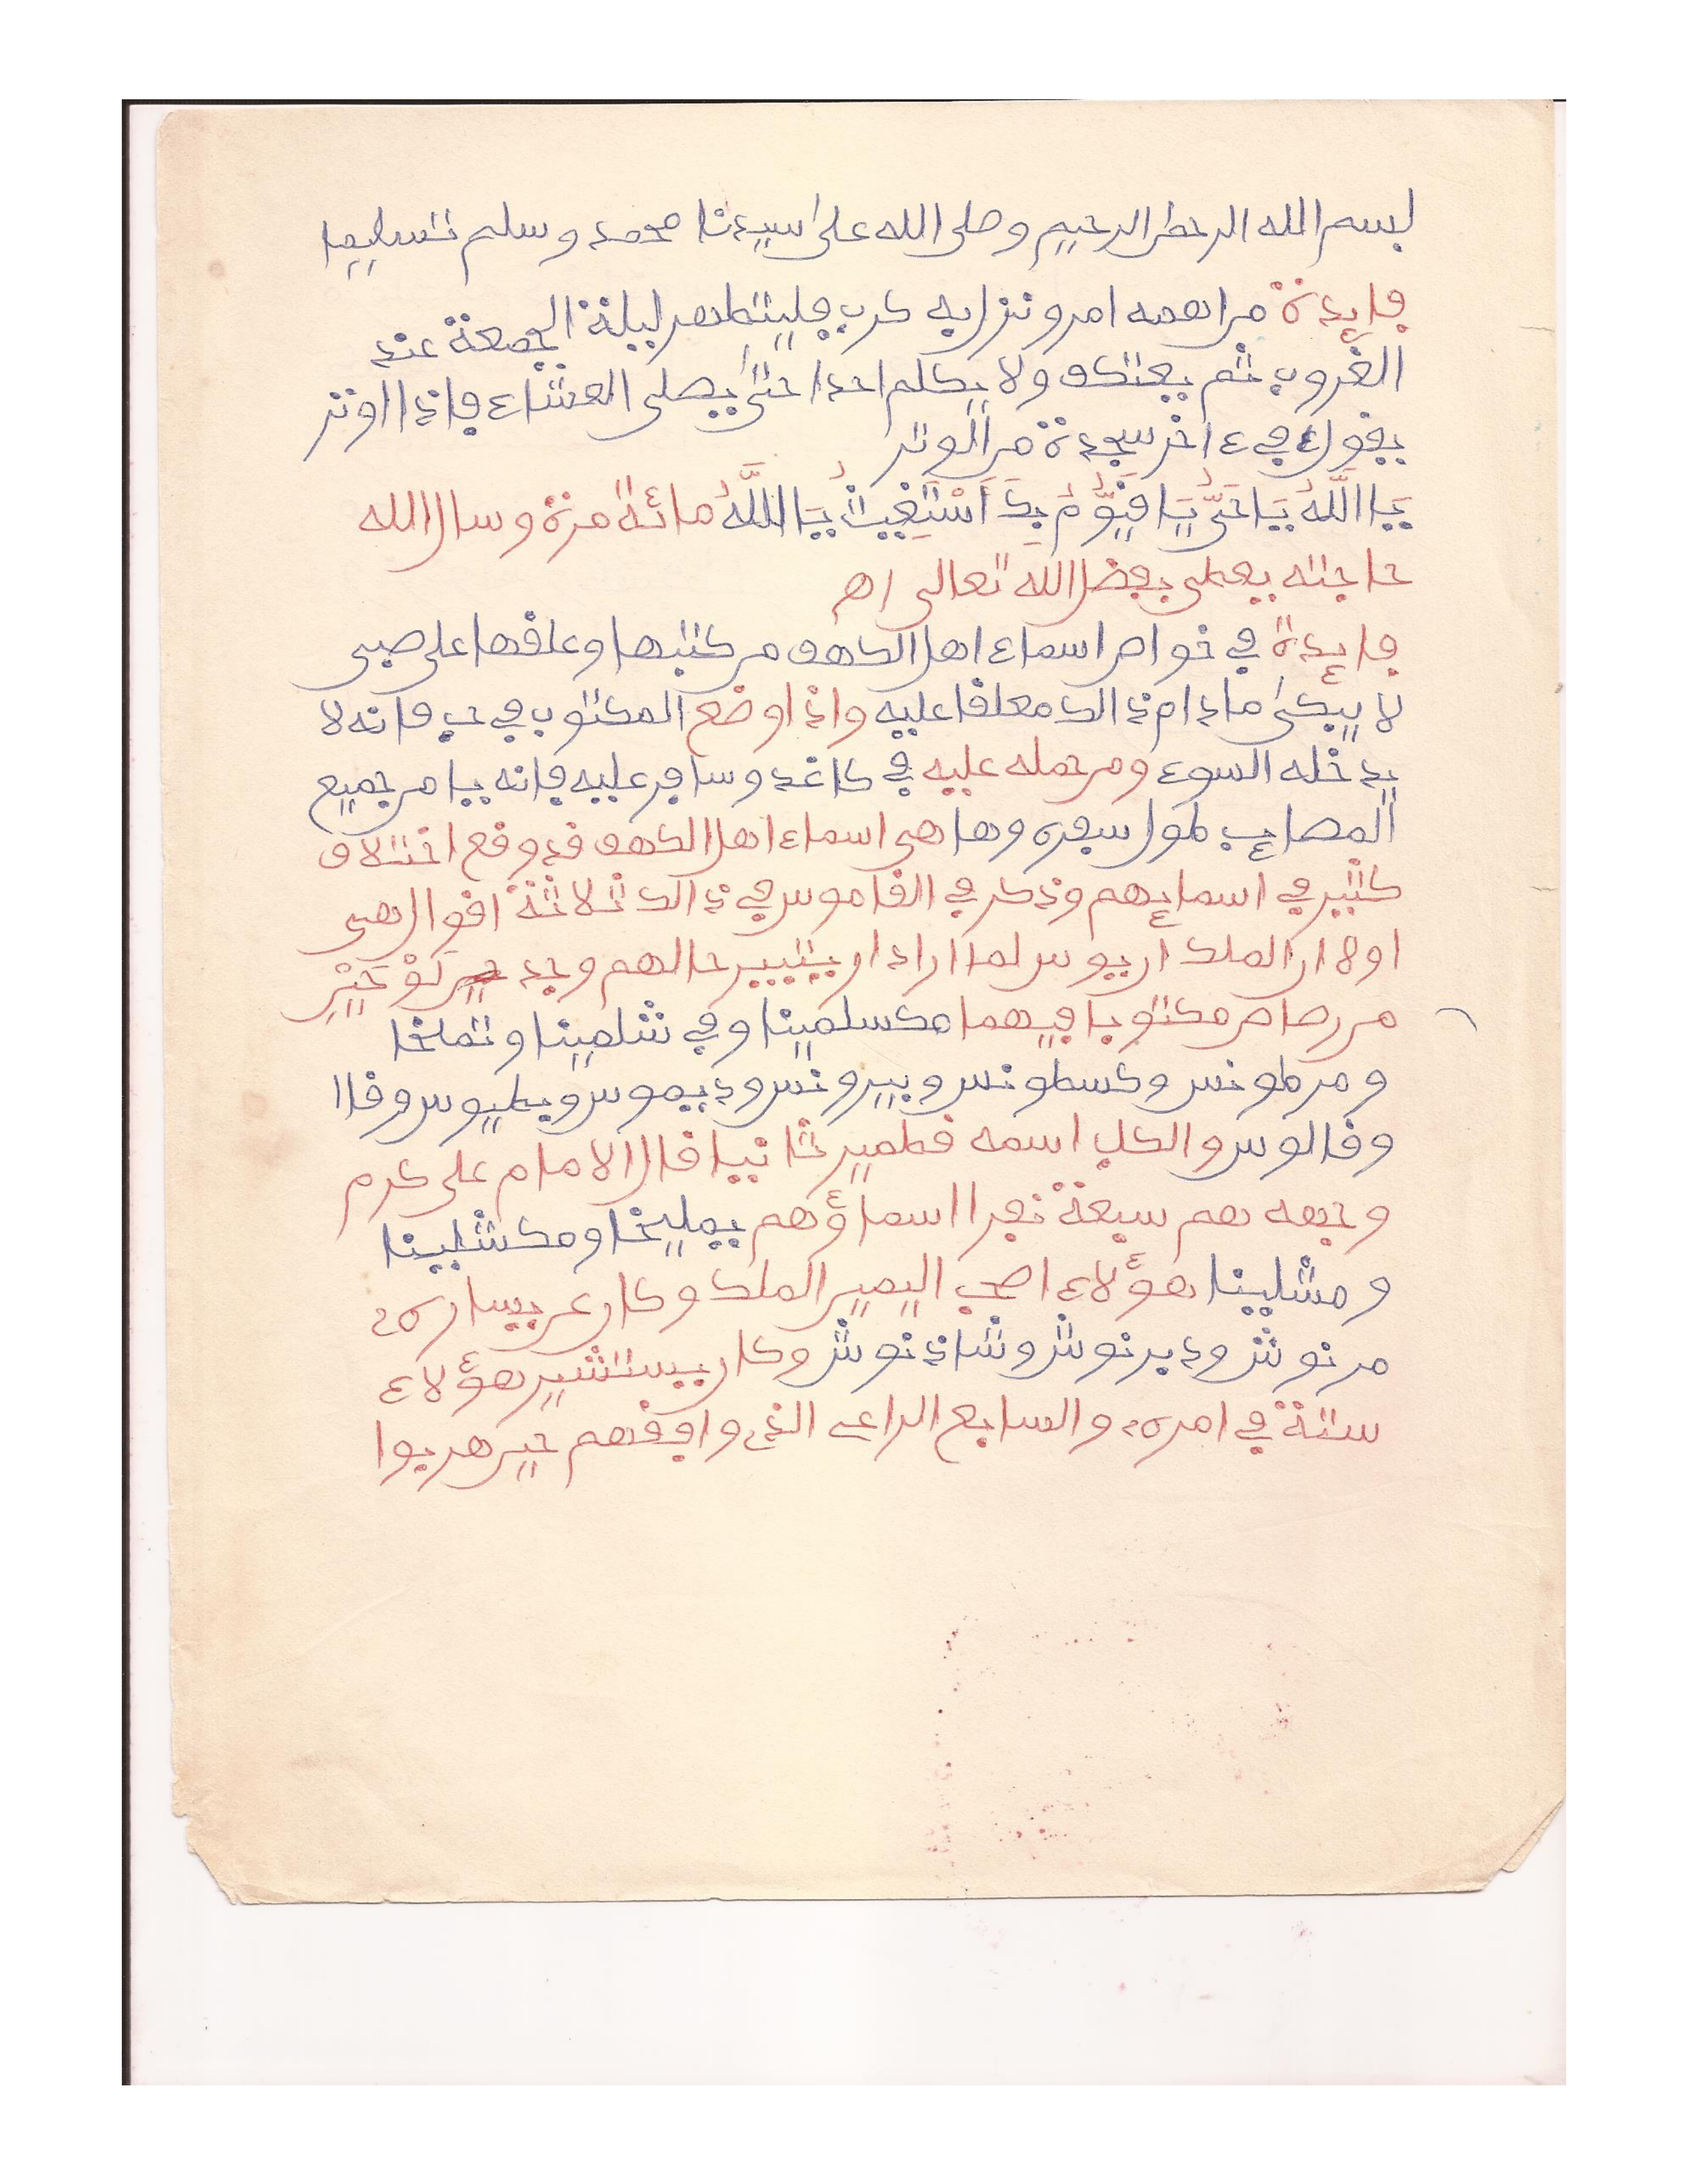 بسم الله الرحمن الرحيم وصلى الله على سيدنا محمد وسلم تسليما
فايدة من اهمه امر ونزل به كرب فليتطهر ليلة الجمعة عند
الغروب ثم يعتكف ولا يكلم احدا حتى يصلى العشاء فاذا اوتر
يقول في ءاخر سجدة من الوتر
يَا اللَّهُ يَا حَىُّ يَا قَيُّومُ بِكَ أَسْتَغِيثُ يَا اللَّهُ مائة مرة وسال الله
حاجته يعطى بفضل الله تعالى اهـ
فايدة في خواص اسماء اهل الكهف من كتبها وعلقها على صبى
لا يبكى مادام ذالك معلقا عليه واذا وضع المكتوب في حب فانه لا
يدخله السوء ومن حمله عليه في كاغد وسافر عليه فانه يامن جميع
المصايب طول سفره وها هى اسماء اهل الكهف قد وقع اختلاف
كثير في اسمايهم وذكر في القاموس في ذالك ثلاثة اقوال هى
اولا ان الملك اريوس لما اراد ان يتبين حالهم وجد لَوْحَيْنِ
من رصاص مكتوبا فيهما مكسلمينا وفي شلمينا وتملخا
ومرطونس وكسطونس وبيرونس وديموس وبطيوس وقالا
وقالوس والكلب اسمه قطمير ثانيا قال الامام على كرم
وجهه هم سبعة نفرا اسماؤهم يمليخا ومكشلينا
ومشلينا هؤلاء اصحب اليمين الملك وكان عن يساره
مرنوش ودبرنوش وشاذنوش وكان يستشير هؤلاء
ستة في امره والسابع الراعى الذى وافقهم حين هربوا